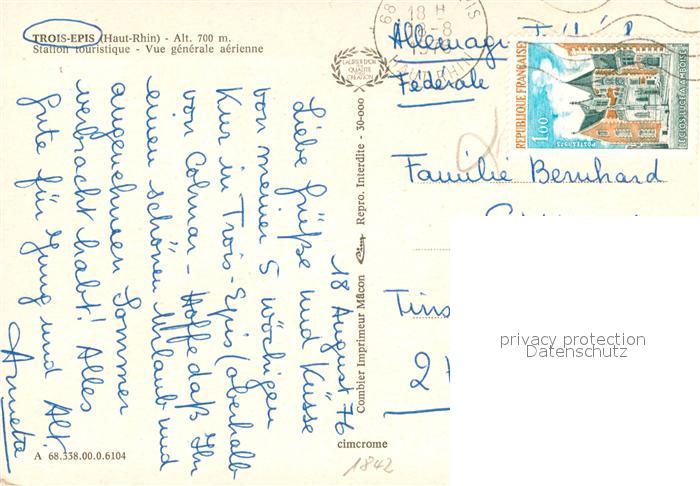 TROIS-EPIS (Haut-Rhin) - Alt. 700 m.
Station touristique - Vue générale aérienne
18 August 76
Liebe Grüße und Küsse
von meiner 5 wöchigen
Kur in Trois-Epis (oberhalb
von Colmar - Hoffe daß Ihr
einen schönen Urlaub und
angenehmen Sommer
verbracht habt! Alles
Gute für Jung und Alt
Annette
A 68.338.00.0.6104
LAURIER D'OR
DE LA
QUALITÉ
CRÉATION
Combier Imprimeur Mâcon
Repro. Interdite - 30-000
cimcrome
1842
68
18 H
-8
1976
HAUT-RHIN
REPUBLIQUE FRANÇAISE
1,00
POSTES 1973
LE CLOS LUCÉ A AMBOISE
Allemagne
Fédérale
Familie Bernhard
2
privacy protection
Datenschutz